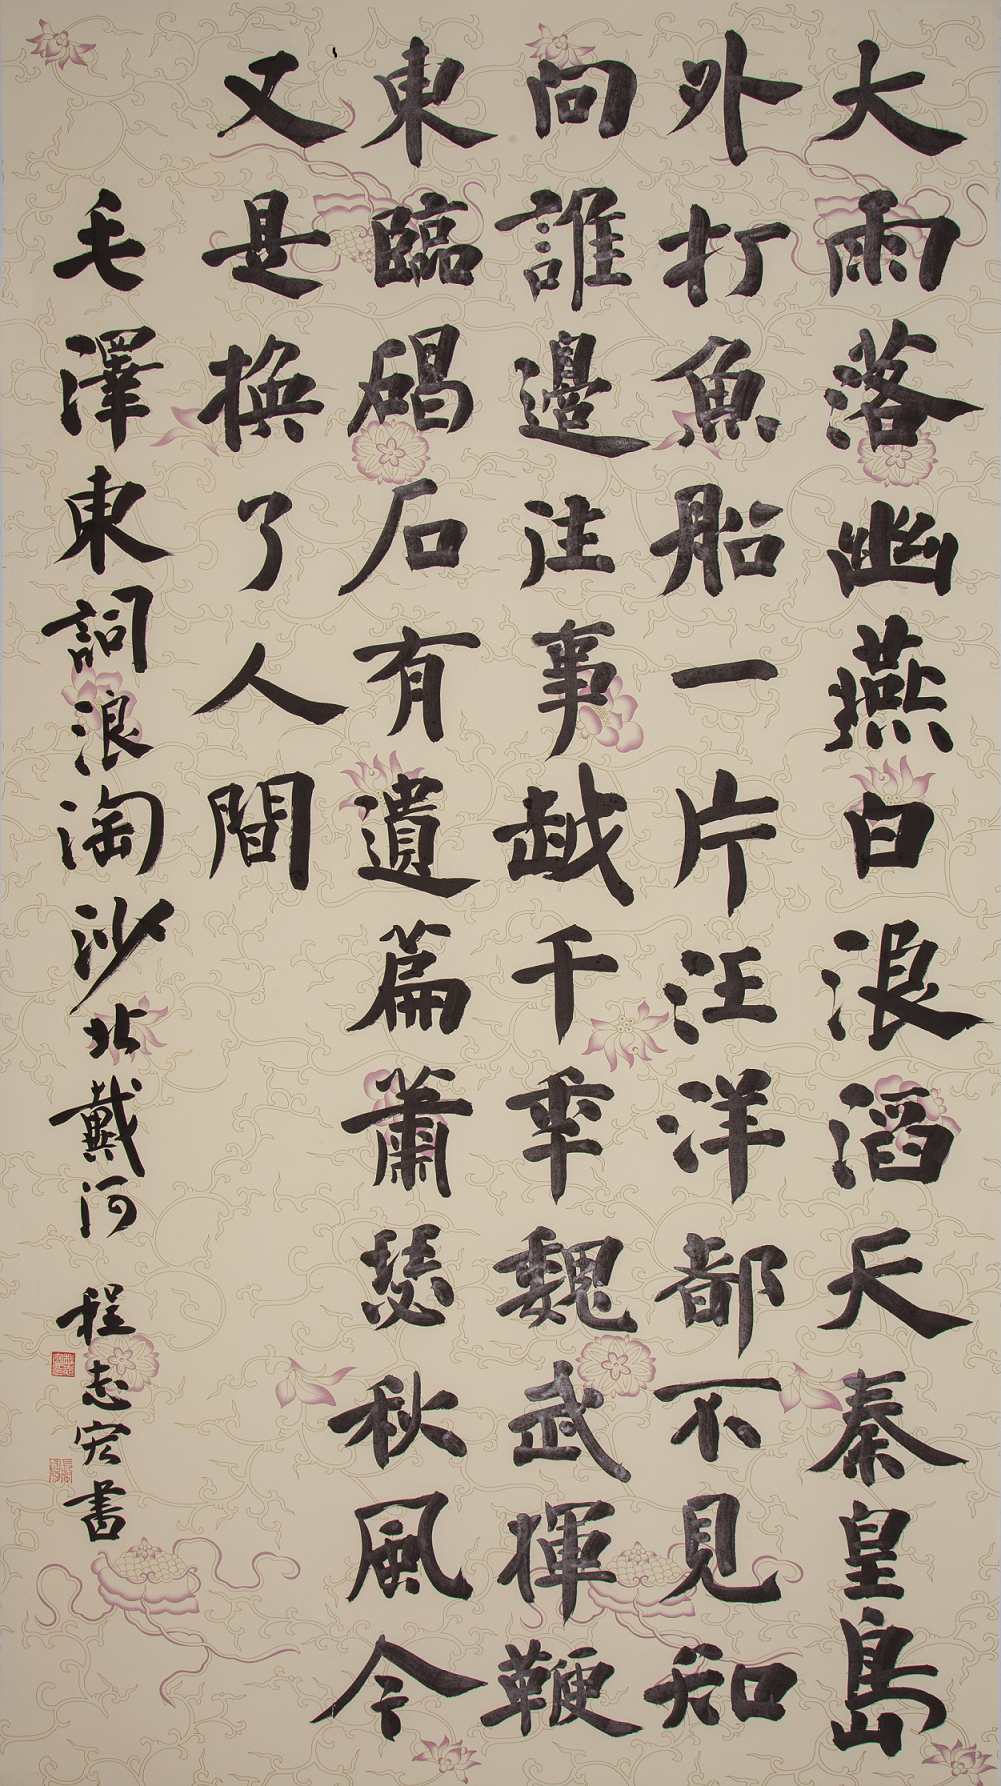 大雨落幽燕白浪滔天秦皇島
外打魚船一片汪洋都不見知
向誰邊往事越千秊魏武揮鞭
東臨碣石有遺篇蕭瑟秋風今
又是換了人間
毛澤東詞浪淘沙北戴河 程志宏書